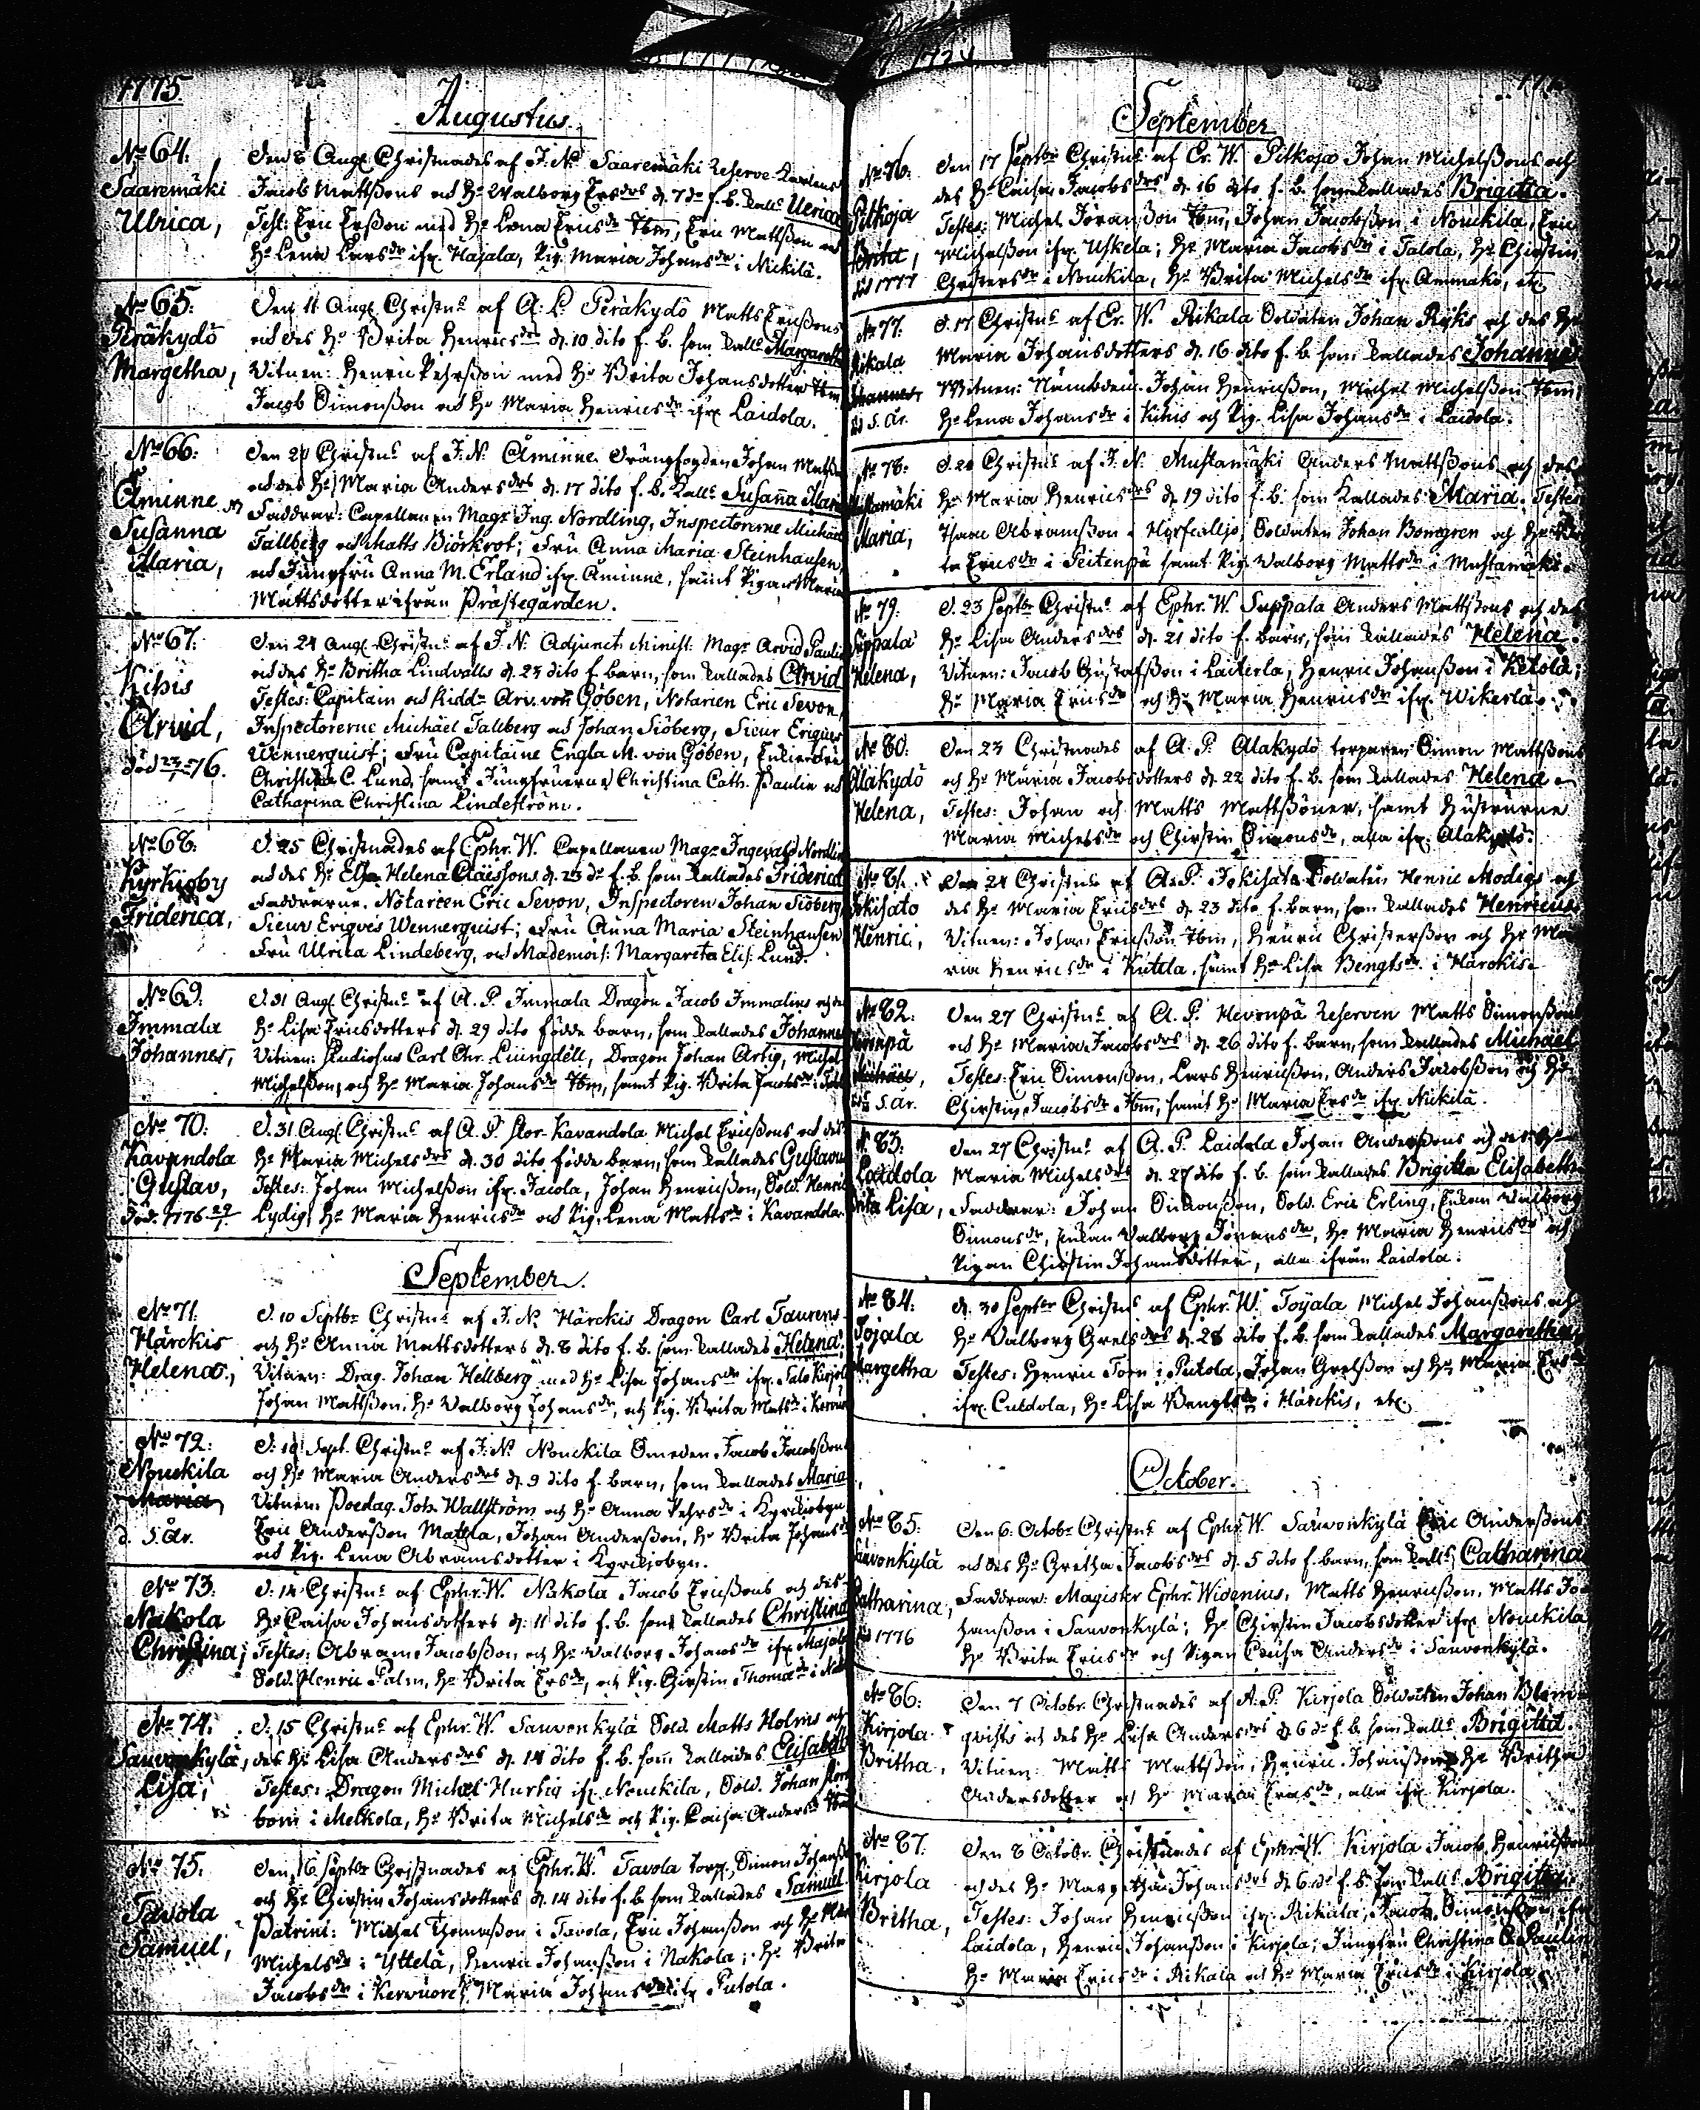 1775
Augustus.
No 64.
Saaremäki
Ulrica,
Den 8 Aug. Christnades af J. N. Saaremäki Reserve Karlens
Jacob Mattssons och Hu Walborg Ersdrs d. 7 do f. b. kalls Ulrica
Test: Eric Ersson med Hu Lena Ericsdr ibm, Eric Mattsson och
Hu Lena Larsdr ifr. Hajala, Pig. Maria Johansdr i Nickilä.
No 65.
Peräkydö
Margetha,
Den 11 Aug. Christns af A. P. Peräkydö Matts Erissons
och des Hu Brita Henricsdrs d. 10 dito f. b. som kalls Margareta
Vitnen: Henric Pehrsson med Hu Brita Johansdotter ibm,
Jacob Simonsson och Hu Maria Henricsdr ifr. Laidola.
No 66.
Åminne
Susanna
Maria,
Den 20 Christns af J. N. Åminne Drängfogden Johan Matss
och des Hu Maria Andersdrs d. 17 dito f. b. kalls Susanna Mar
Faddrar: Capellanen Magr Ing. Nordling, Inspectorerne Michaël
Tallberg och Matts Biörkrot; Fru Anna Maria Steinhausen,
och Jungfru Anna M. Erland ifr. Åminne, samt Pigan Maria
Mattsdotter ifrån Prästegården.
No 67.
Kihis
Arvid,
död 23/1 76.
Den 24 Aug. Christns af J. N. Adjunct. Minist: Magr Arvid Paulin
och des Hu Britha Lindvalls d. 23 dito f. barn, som kallades Arvid
Testes: Capitain och Riddr Arv. von Göben, Notarien Eric Sevon,
Inspectorerne Michael Tallberg och Johan Siöberg, Sieur Erigius
Wennerquist; Fru Capitaine Engla M. von Göben, Enkiefru
Christina C. Lund, samt Jungfruerne Christina Cath. Paulin och
Catharina Christina Lindeström.
No 68.
Kyrkioby
Friderica,
D. 25 Christnades af Ephr. W. Capellanen Magr Ingevald Nordlin
och des Hu Elsa Helena Claëssons d. 23 do f. b. som kallades Friderica
Faddrarne: Notarien Eric Sevon, Inspectoren Johan Siöberg,
Sieur Erigius Wennerquist; Fru Anna Maria Steinhausen
Fru Ulrica Lindeberg, och Mademois: Margareta Elis: Lund.
No 69.
Immala
Johannes,
D. 31 Aug. Christns af A. P. Immala Dragon Jacob Immalins och des
Hu Lisa Ericsdotters d. 29 dito födde barn, som kallades Johannes
Vitnen: Studiosus Carl Chr. Liungdell, Dragon Johan Artig, Michel
Michelsson, och Hu Maria Johansdr ibm, samt Pig. Brita Jacobsdr i
No 70.
Kavandola
Gustav,
död. 1776 29/1
D. 31 Aug. Christns af A. P. Stor-Kavandola Michel Ericssons och des
Hu Maria Michelsdrs d. 30 dito födde barn, som kallades Gustavus
Testes: Johan Michelsson ifr. Jacola, Johan Henricsson, Sold. Henric
Lydig, Hu Maria Henricsdr och Pig. Lena Mattsdr i Kavandola.
September.
No 71.
Härckis
Helena,
D. 10 Septbr Christns af J. N. Härckis Dragon Carl Taurens
och Hu Anna Mattsdotters d. 8 dito f. b. som kallades Helena,
Vitnen: Drag. Johan Hellberg med Hu Lisa Johansdr ifr. Salo Kirjola
Johan Mattsson, Hu Valborg Johansdr, och Pig. Brita Matsdr i
No 72.
Nouckila
Maria,
d. 5 år.
D. 10 Sept. Christns af J. N. Nouckila Smeden Jacob Jacobsson
och Hu Maria Andersdrs d. 9 dito f. barn, som kallades Maria
Vitnen: Poedag. Joh. Wallström och Hu Anna Pehrsdr i Kyrckiobyn
Eric Andersson Mattila, Johan Andersson, Hu Brita Johansdr
och Pig. Lena Abramsdotter i Kyrckiobyn.
No 73.
Nakola
Christina,
D. 14 Christns af Ephr. W. Nakola Jacob Ericssons och des
Hu Caisa Johansdotters d. 11 dito f. b. som kallades Christina
Testes: Abram Jacobsson och Hu Walborg Johansdr ifr. Majala
Sold. Henric Palm, Hu Brita Ersdr, och Pig. Chirstin Thomædr i
No 74.
Sauvonkylä,
Lisa,
D. 15 Christns af Ephr. W. Sauvonkylä Sold. Matts Holms och
des Hu Lisa Andersdrs d. 14 dito f. b. som kallades Elisabeth
Testes: Dragon Michel Hurtig ifr. Nouckila, Sold. Johan
bom i Melkola, Hu Brita Michelsdr och Pig. Caisa Andersdr ibm
No 75.
Tavola
Samuel,
Den 16 Septbr Christnades af Ephr. W. Tavola torp. Simon Johanss
och Hu Chirstin Johansdotters d. 14 dito f. b. som kallades Samuel
Patrini: Michel Thomasson i Tavola, Eric Johansson och Hu
Michelsdr i Yttelä, Henric Johansson i Nakola; Hu Brita
Jacobsdr i Kervuori, Maria Johansdr ifr. Putola.
September
No 76.
Pitkoja
Brita,
död 1777
Den 17 Septbr Christns af Er. W. Pitkoja Johan Michelssons och
des Hu Caisa Jacobsdrs d. 16 dito f. b. som kallades Brigitta.
Testes: Michel Jöransson ibm, Johan Jacobsson i Nouckila, Eric
Michelsson ifr. Uskela; Hu Maria Jacobsdr i Talola, Hu Chirstin
Christersdr i Nouckila, Hu Brita Michelsdr ifr. Ammakö, etc.
No 77.
Rikala
Johannes
död 5. år.
D. 17 Christns af Er. W. Rikala Soldaten Johan Ryks och des Hu
Maria Johansdotters d. 16 dito f. b. som kallades Johannes
Vitnen: Nämbdem. Johan Henricsson, Michel Michelsson ibm,
Hu Lena Johansdr i Kihis och Pig. Lisa Johansdr i Laidola.
No 78.
Mustamäki
Maria,
D. 20 Christns af J. N. Mustamäki Anders Mattssons och des
Hu Maria Henricsdrs d. 19 dito f. b. som kallades Maria. Testes
Isaac Abramsson i, Soldaten Johan Bomgren och Hu
ta Ericsdr i Peitenpä samt Pig. Valborg Mattsdr i Mustamäki.
No 79.
Suppala
Helena,
D. 23 Septbr Christns af Ephr. W. Suppala Anders Mattssons och des
Hu Lisa Andersdrs d. 21 dito f. barn, som kallades Helena.
Vitnen: Jacob Gustafsson i Laiterla, Henric Johansson i Ketola;
Hu Maria Ericsdr och Hu Maria Henricsdr ifr. Wikerlä.
No 80.
Alakydö
Helena,
Den 23 Christnades af A. P. Alakydö torparen Simon Mattssons
och Hu Maria Jacobsdotters d. 22 dito f. b. som kallades Helena
Testes: Johan och Matts Mattssöner, samt Hustrurne
Maria Michelsdr och Chirstin Simonsdr, alla ifr. Alakydö.
No 81.
Jokisato
Henric,
Den 24 Christns af A. P. Jokisato Soldaten Henric Modigs och
des Hu Maria Ericsdrs d. 23 dito f. barn, som kallades Henricus
Vitnen: Johan Ericsson ibm, Henric Christersson och Hu Ma
ria Henricsdr i Kutela, samt Hu Lisa Bengtsdr i Härckis.
No 82.
Hevonpä
Michaël,
död 5. år.
Den 27 Christns af A. P. Hevonpä Reserven Matts Simonssons
och Hu Maria Jacobsdrs d. 26 dito f. barn, som kallades Michaël
Testes: Eric Simonsson, Lars Henricsson, Anders Jacobsson och Hu
Chirstin Jacobsdr ibm, samt Hu Maria Ersdr ifr. Nickilä.
No 83.
Laidola
Brita Lisa,
Den 27 Christns af A. P. Laidola Johan Anderssons och des Hu
Maria Michelsdrs d. 27 dito f. b. som kallades Brigitta Elisabeth
Faddrar: Johan Simonsson, Sold. Eric Erling, Enkan Valborg
Simonsdr, Enkan Valborg Jöransdr, Hu Maria Henricsdr och
Pigan Chirstin Johansdotter, alla ifrån Laidola.
No 84.
Toijala
Margetha
D. 30 Septbr Christns af Ephr. W. Toijala Michel Johanssons och
Hu Valborg Grelsdrs d. 28 dito f. b. som kallades Margaretha
Testes: Henric Toen i Putola, Johan Grelsson och Hu Maria Ersdr
ifr. Cutdola, Hu Lisa Bengtsdr i Härckis, etc.
October.
No 85.
Sauvonkylä
Catharina,
död 1776
Den 6. Octobr Christns af Ephr. W. Sauvonkylä Eric Anderssons
och des Hu Gretha Jacobsdrs d. 5 dito f. barn, som kalls Catharina
Faddrar: Magister Ephr. Widenius, Matts Henricsson, Matts Jo
hansson i Sauvonkylä; Hu Chirstin Jacobsdotter ifr. Nouckila
Hu Brita Ericsdr och Pigan Caisa Andersdr i Sauvonkylä.
No 86.
Kirjola
Britha,
Den 7 Octobr. Christnades af A. P. Kirjola Soldaten Johan Blom
qvists och des Hu Lisa Andersdrs d. 6 do f. b. som kalls Brigitta.
Vitnen: Matts Mattsson, Henric Johansson, Hu Britha
Andersdotter och Hu Maria Ericsdr, alla ifr. Kirjola.
No 87.
Kirjola
Britha,
Den 8 Octobr. Christnades af Ephr. W. Kirjola Jacob Henricssons
och des Hu Margetha Johansdrs d. 6 do f. b. som kalls Brigitta.
Testes: Johan Henricsson ifr. Rikala, Jacob Simonsson ifr.
Laidola, Henric Johansson i Kirjola; Jungfru Christina C. Paulin
Hu Maria Ericsdr i Rikala och Hu Maria Ericsdr i Kirjola.